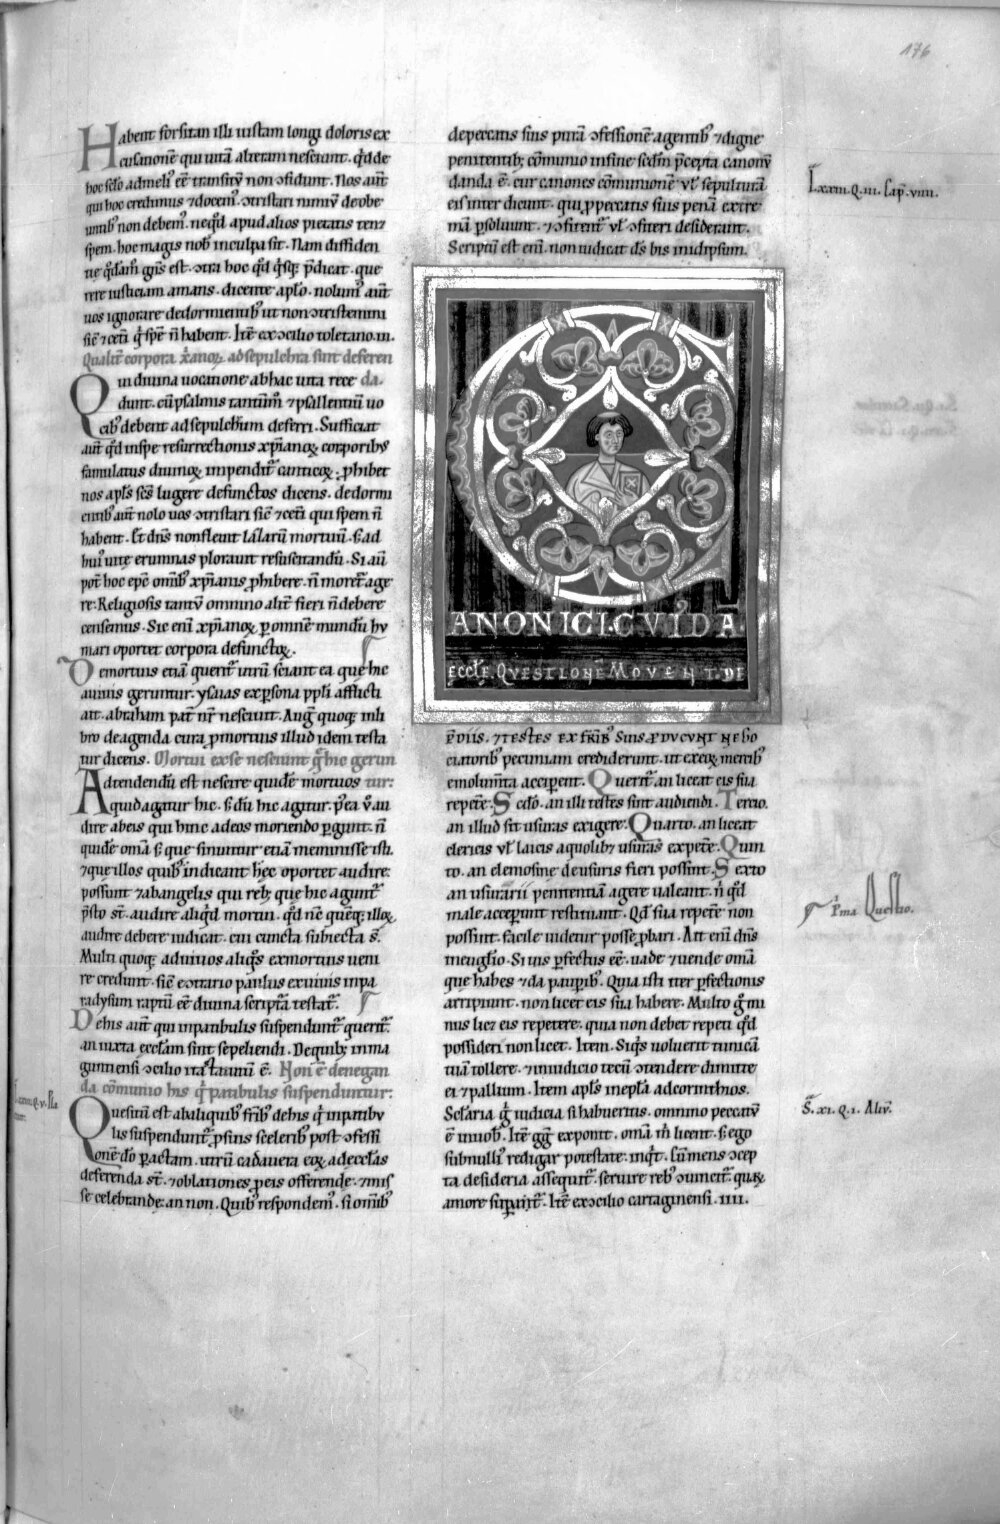 176
Habent forsitan illi iustam longi doloris ex
cusationē qui uitā alteram nesciunt. qd de
hoc sclo ad meli᾽ eē transitū non ꝯfidunt. Nos aūt
qui hoc credimus ⁊ docem᾽. ꝯtristari nimiū de obe
untib᾽ non debem᾽. ne qd apud alios pietatis tenᷣ
spem. hoc magis nob᾽ in culpa sit. Nam diffiden
tie qdam gñis est. ꝯtra hoc qd qsq; p̄dicat. que
rere iusticiam amans. dicente aplo. nolum᾽ aūt
uos ignorare de dormientib᾽ ut non ꝯtristemini
sic̄ ⁊ cet̄i q̇ spē n̄ habent. Itē ex ꝯcilio toletano. iii.
Qualit̄ corpora x̄anoꝝ ad sepulchra sint deferen
Qui diuina uocatione ab hac uita rece da.
dunt. cū psalmis tantūm᾽ ⁊ psallentiū uo
cib᾽ debent ad sepulchrum deferri. Sufficiat
aūt qd in spe resurrectionis xp̄ianoꝝ corporib᾽
famulatus diuinoꝝ impendit᷑ canticoꝝ. ꝓhibet
nos apl̄s sc̄s lugere defunctos dicens. de dormi
entib᾽ aūt nolo uos ꝯtristari sic̄ ⁊ cet̄i qui spem n̄
habent. Et dn̄s non fleuit lazarū mortuū. s; ad
hui᾽ uite erumnas plorauit resuscitandū. Si aū
pot̄ hoc epc̄ omīb᾽ xp̄ianis ꝓhibere. n̄ moret᷑ age
re. Religiosis tantū omnino alit̄ fieri n̄ debere
censemus. Sic eni xp̄ianoꝝ ꝑ omnē mundū hu
mari oportet corpora defunctoꝝ.
De mortuis etiā querit᷑ utrū sciant ea que hic
a uiuis geruntur. ysaias ex ꝑsona ppli afflicti
ait. abraham pat̄ nr̄ nesciuit. Aug̃ quoq; in li
bro de agenda cura ꝓ mortuis illud idem testa
tur dicens. Mortui ex se nesciunt q̄ hic gerun
Adtendendū est nescire quidē mortuos tur.
quid agatur hic. s; dū hic agitur. p᾽ea ū au
dire ab eis qui hinc ad eos moriendo ꝑgunt. n̄
quidē omīa s; que sinuntur etiā meminisse isti.
⁊ que illos quib᾽ indicant hec oportet audire.
possunt ⁊ ab angelis qui reb; que hic agunt᷑
p̄sto st̄. audire aliqd mortui. qd nc̄ quēq; illoꝝ
audire debere iudicat. cui cuncta subiecta st̄.
Multi quoq; ad uiuos aliqs ex mortuis ueni
re credunt. sic̄ e ꝯtrario paulus ex uiuis in pa
radysum raptū eē diuina scriptā testat᷑.
De his aūt qui in patibulis suspendunt᷑ querit᷑.
an iuxta eccl̄am sint sepeliendi. De quib; in ma
guntiensi ꝯcilio ita statutū ē. Non ē denegan
da cōmunio his q̇ patibulis suspenduntur.
Quesitū est ab aliquib᾽ frīb᾽ de his q̇ in patibu
lis suspendunt᷑ ꝓ suis scelerib᾽ post ꝯfessi
onē dō peractam. utrū cadauera eoꝝ ad ecclas
deferenda st̄. ⁊ oblationes ꝓ eis offerende. ⁊ mis
se celebrande. an non. Quib᾽ respondem᾽. si omīb᾽
de peccatis suis purā ꝯfessionē agentib᾽ ⁊ digne
penitentib; cōmunio in fine scd̄m p̄cepta canonū
danda ē. cur canones cōmunionē ul̄ sepulturā
eis inter dicunt. qui ꝓ peccatis suis penā extre
mā ꝑsoluunt. ⁊ ꝯfitent᷑ ul̄ ꝯfiteri desiderant.
Scriptū est eni. non iudicat ds̄ bis in id ipsum.
Lxxiii. Q. iii. Cap̄. viiii.
ANONICI. CVIDĀ.
ECCLE. QVESTIONĒ MOVENT. DE
P̄DIIS. ⁊ TESTES EX FRĪB᾽ SUIS ꝐDVCVNT NEGO
ciatorib᾽ pecuniam crediderunt. ut ex eoꝝ mercib᾽
emolumīta acciperent. Querit᷑ an liceat eis sua
repetē. Scd̄o. an illi testes sint audiendi. Tercio.
an illud sit usuras exigere. Quarto. an liceat
clericis ul̄ laicis a quolib; usuras expetē. Quin
to. an elemosine de usuris fieri possint. Sexto
an usurarii penitentiā agere ualeant. n̄ qd
male acceperunt restituant. Qd sua repetē non
possint. facile uidetur posse ꝓbari. Ait eni dn̄s
in euglio. Si uis ꝑfectus eē. uade ⁊ uende omīa
que habes ⁊ da pauꝑib᾽. Quia isti iter ꝑfectionis
arripiunt. non licet eis sua habere. Multo ḡ mi
nus licet eis repetere. quia non debet repeti qd
possideri non licet. Item. Siqs uoluerit tunicā
tuā tollere. ⁊ in iudicio tecū ꝯtendere dimitte
ei ⁊ pallium. Item apl̄s in epl̄a ad corinthios.
Scl̄aria ḡ iudicia si habueritis. omnino peccatū
ē in uob᾽. Itē gg̃ exponit. omīa m̄ licent. s; ego
sub nulli᾽ redigar potestate. inqt. Cūmens ꝯcep
ta desideria assequit᷑. seruire reb᾽ ꝯuincit᷑. quaꝝ
amore supat᷑. Itē ex ꝯcilio cartaginensi. iiii.
P̄ma Questio.
S̄. xi. Q. i. Aliū.